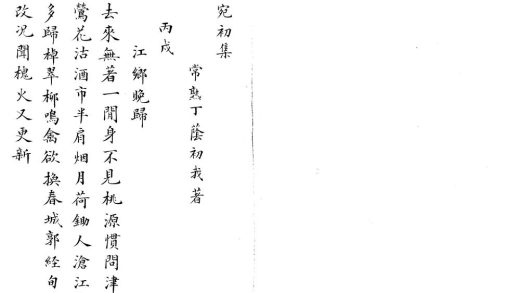 宛初集
常熟丁蔭初我著
丙戌
江鄉晚歸
去來無著一閒身不見桃源慣問津
鶯花沽酒市半肩烟月荷鋤人滄江
多歸棹翠柳鳴禽欲換春城郭經旬
改況聞槐火又更新